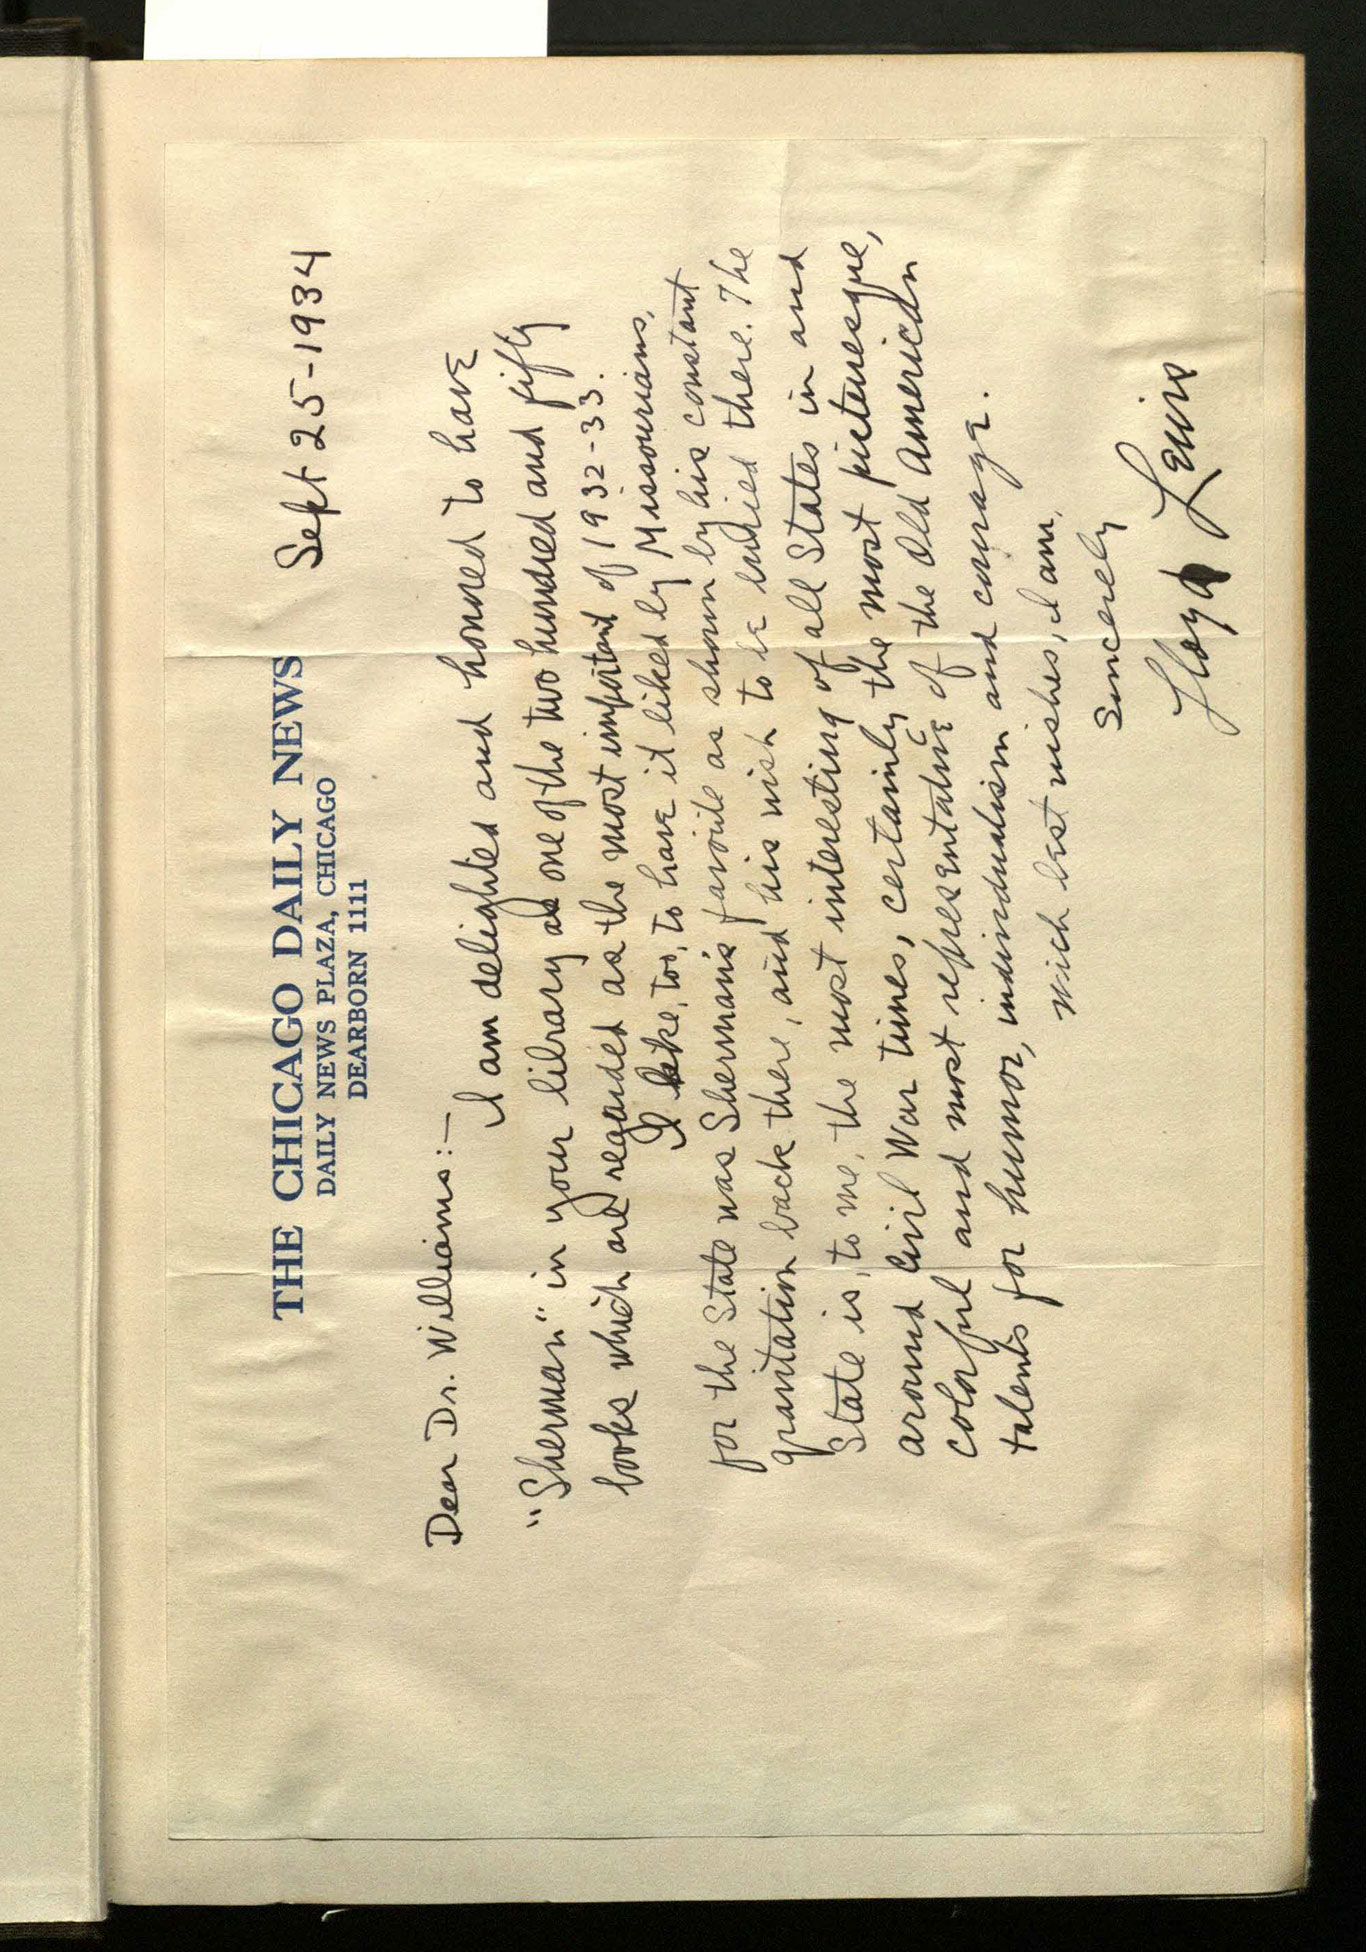 THE CHICAGO DAILY NEWS
DAILY NEWS PLAZA, CHICAGO
DEARBORN 1111
Sept 25-1934
Dear Dr. Williams:—
I am delighted and honored to have
"Sherman" in your library as one of the two hundred and fifty
books which are regarded as the most important of 1932-33.
I like, too, to have it liked by Missourians,
for the State was Sherman's favorite as shown by his constant
gravitation back there, and his wish to be buried there. The
State is, to me, the most interesting of all States in and
around Civil War times, certainly the most picturesque,
colorful and most representative of the Old American
talents for humor, individualism and courage.
With best wishes, I am,
Sincerely
Lloyd Lewis